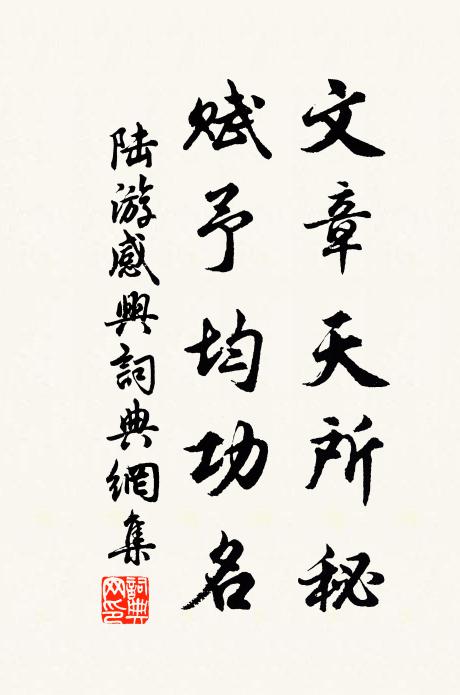 文章天所秘
赋予均功名
陆游感興詞典網集
詞典網印